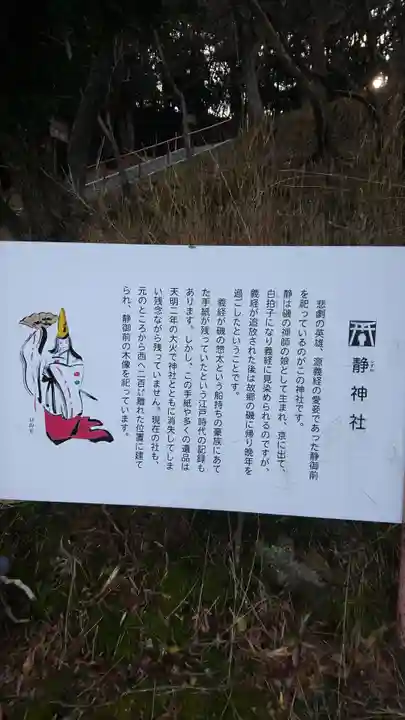 静神社
悲劇の英雄、源義経の愛妾であった静御前
を祀っているのがこの神社です。
静は磯の禅師の娘として生まれ、京に出て、
白拍子になり義経に見染められるのですが、
義経が追放された後は故郷の磯に帰り晩年を
過ごしたということです。
義経が磯の惣太という船持ちの豪族にあて
た手紙が残っていたという江戸時代の記録も
あります。しかし、この手紙や多くの遺品は
天明二年の大火で神社とともに消失してしま
い残念ながら残っていません。現在の社も、
元のところから西へ二百㍍離れた位置に建て
られ、静御前の木像を祀っています。